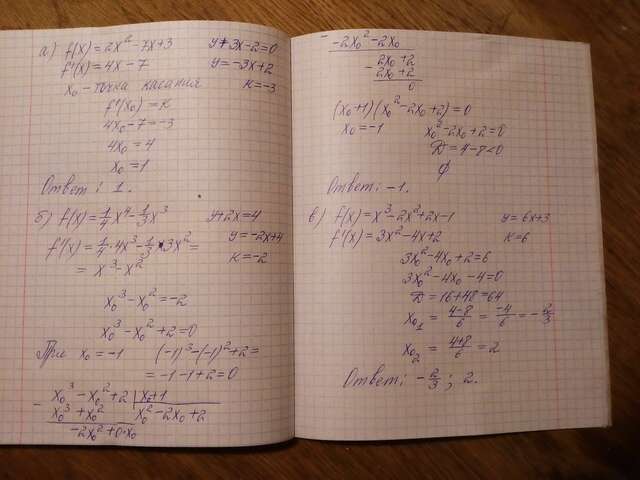 а) f(x)=2x²-7x+3 y+3x-2=0
f'(x)=4x-7 y=-3x+2
x₀ - точка касания к=-3
f'(x₀)=к
4x₀-7=-3
4x₀=4
x₀=1
Ответ: 1.
б) f(x)=1/4x⁴-1/3x³ y+2x=4
f'(x)=1/4·4x³-1/3·3x²= y=-2x+4
=x³-x² к=-2
x₀³-x₀²=-2
x₀³-x₀²+2=0
При x₀=-1 (-1)³-(-1)²+2=
=-1-1+2=0
- x₀³-x₀²+2 | x₀+1
x₀³+x₀² x₀²-2x₀+2
-2x₀²+0·x₀
- -2x₀²-2x₀
- 2x₀+2
2x₀+2
0
(x₀+1)(x₀²-2x₀+2)=0
x₀=-1 x₀²-2x₀+2=0
D=4-8<0
∅
Ответ: -1.
в) f(x)=x³-2x²+2x-1 y=6x+3
f'(x)=3x²-4x+2 к=6
3x₀²-4x₀+2=6
3x₀²-4x₀-4=0
D=16+48=64
x₀₁=(4-8)/6=-4/6=-2/3
x₀₂=(4+8)/6=2
Ответ: -2/3; 2.